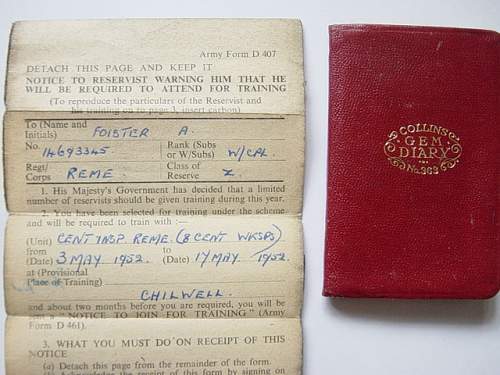 Army Form D 407
DETACH THIS PAGE AND KEEP IT
NOTICE TO RESERVIST WARNING HIM THAT HE
WILL BE REQUIRED TO ATTEND FOR TRAINING
(To reproduce the particulars of the Reservist and
his training on to page 3, insert carbon)
To (Name and
Initials) FOISTER A.
No. 14693345 Rank (Subs or W/Subs) W/CPL.
Regt/
Corps REME. Class of Reserve Z.
1. His Majesty's Government has decided that a limited
number of reservists should be given training during this year.
2. You have been selected for training under the scheme
and will be required to train with :—
(Unit) CENT INSP. REME. (8 CENT WKSPS)
from (Date) 3 MAY 1952. to (Date) 17 MAY. 1952.
at (Provisional
Place of Training)
CHILWELL.
and about two months before you are required, you will be
sent a "NOTICE TO JOIN FOR TRAINING" (Army
Form D 461).
3. WHAT YOU MUST DO ON RECEIPT OF THIS
NOTICE
(a) Detach this page from the remainder of the form.
(b) Acknowledge the receipt of this form by signing on
COLLINS
GEM
DIARY
No. 363